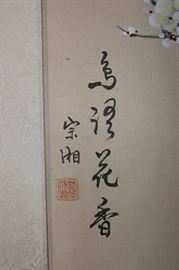 鳥語花香
宗湘